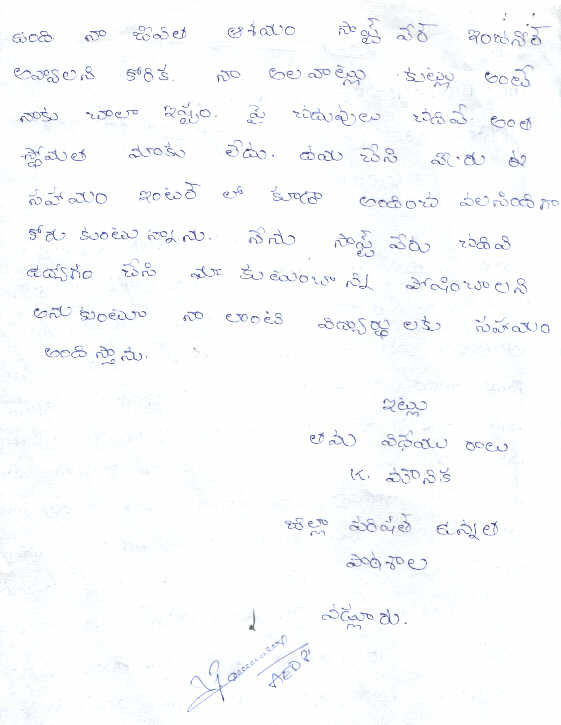 ఉంది నా జీవిత ఆశయం సాఫ్ట్ వేర్ ఇంజనీర్
అవ్వాలని కోరిక. నా అలవాట్లు కుట్లు అంటే
నాకు చాలా ఇష్టం. పై చదువులు చదివే అంత
స్తోమత మాకు లేదు. దయ చేసి మీరు ఈ
సహాయం ఇంటర్ లో కూడా అందించ వలసిందిగా
కోరు కుంటు న్నాను. నేను సాఫ్ట్ వేరు చదివి
ఉద్యోగం చేసి మా కుటుంబా న్ని పోషించాలని
అనుకుంటూ నా లాంటి విద్యార్థు లకు సహాయం
అంది స్తాను.
ఇట్లు
తమ విధేయు రాలు
K. మౌనిక
జిల్లా పరిషత్ ఉన్నత
పాఠశాల
వడ్లూరు.
AEDP